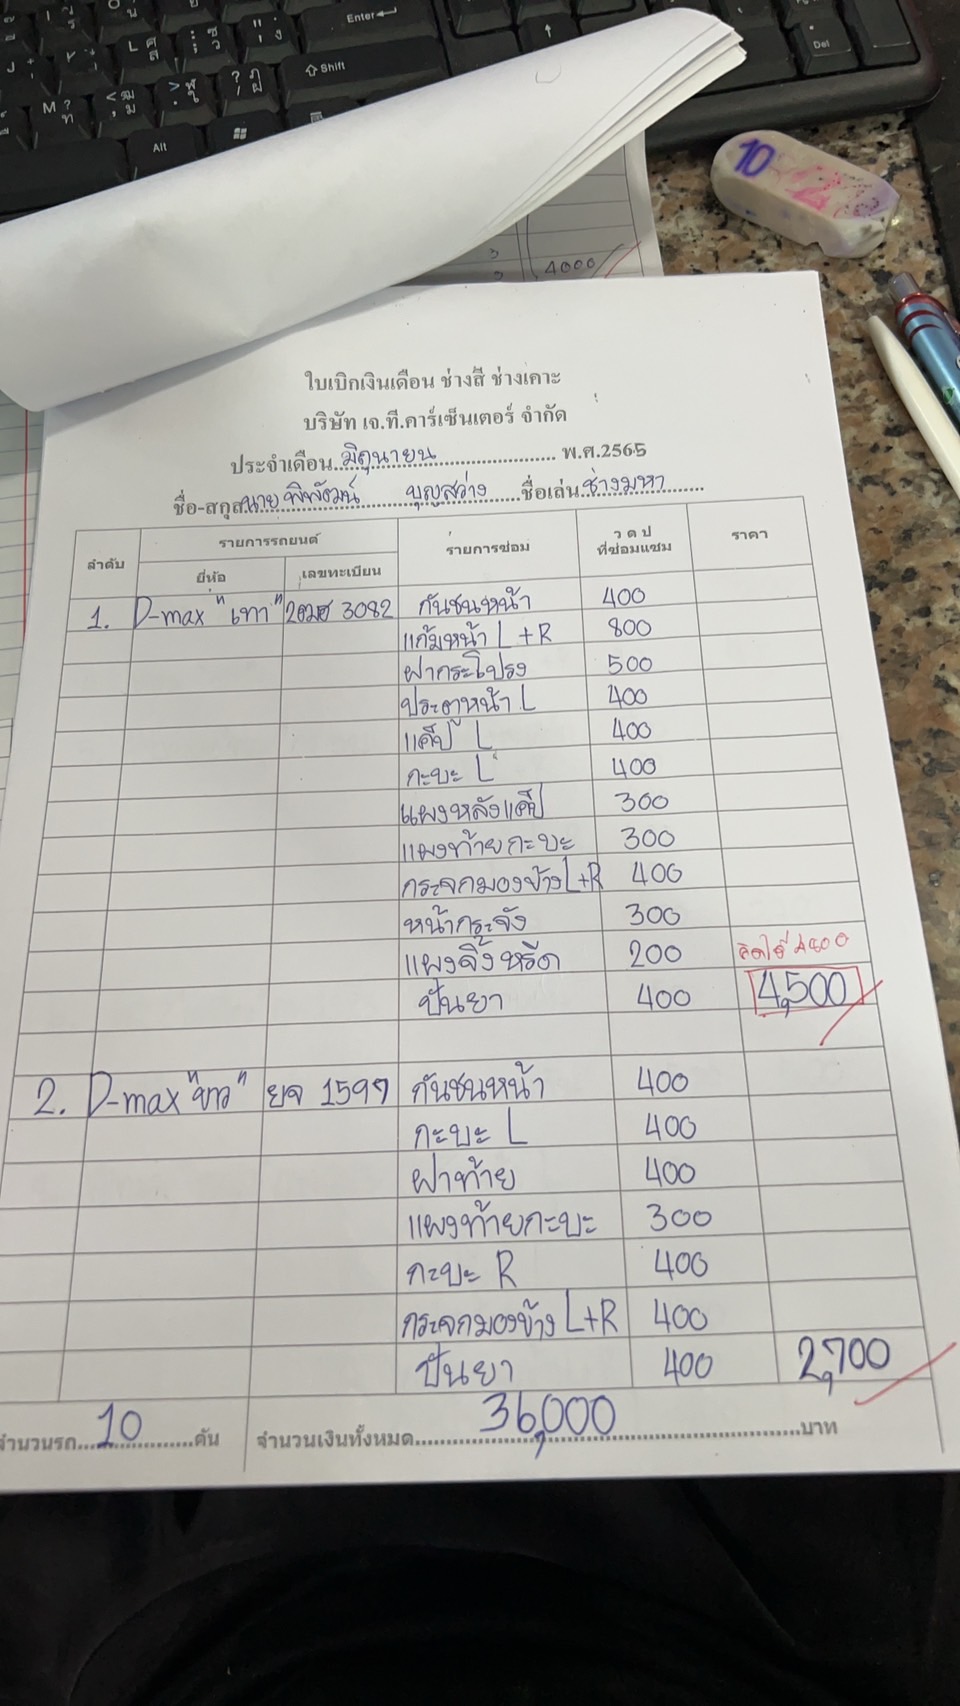 Enter
Shift
Alt
Del
10
4000
ใบเบิกเงินเดือน ช่างสี ช่างเคาะ
บริษัท เจ.ที.คาร์เซ็นเตอร์ จำกัด
ประจำเดือน..มิถุนายน.......................... พ.ศ.2565
ชื่อ-สกุล นาย พิพัฒน์ บุญสว่าง ......ชื่อเล่น..ช่างมหา.......
ลำดับ รายการรถยนต์ รายการซ่อม ว ด ป ที่ซ่อมแซม ราคา
ยี่ห้อ เลขทะเบียน
1. D-max "เทา" 3082 กันชนหน้า 400
แก้มหน้า L+R 800
ฝากระโปรง 500
ประตูหน้า L 400
แค็ป L 400
กะบะ L 400
แผงหลังแค็ป 300
แผงท้ายกะบะ 300
กระจกมองข้าง L+R 400
หน้ากระจัง 300
แผงจิ้งหรีด 200 คิดได้ 4800
ปั่นยา 400 4,500
2. D-max "ขาว" ยจ 1597 กันชนหน้า 400
กะบะ L 400
ฝาท้าย 400
แผงท้ายกะบะ 300
กะบะ R 400
กระจกมองข้าง L+R 400
ปั่นยา 400 2,700
จำนวนรถ...10...........คัน จำนวนเงินทั้งหมด........36,000..............................บาท